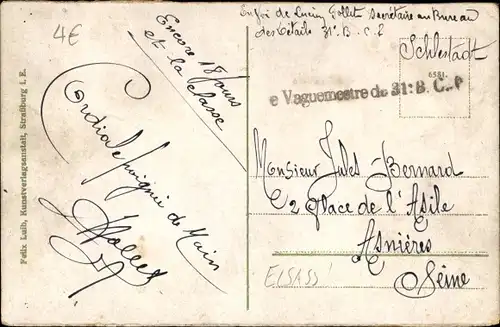 4€
Encore 18 jours
et la classe
Cordiale poignée de Main
Felix Luib, Kunstverlagsanstalt, Straßburg i. E.
Envoi de Lucien Gollet Secrétaire au Bureau
des Détails 31e. B. C. P
Schlestadt
6581.
e Vaguemestre du 31e B. C. P
Monsieur Jules Bernard
2 Place de l'Asile
Asnières
Seine
ELSASS